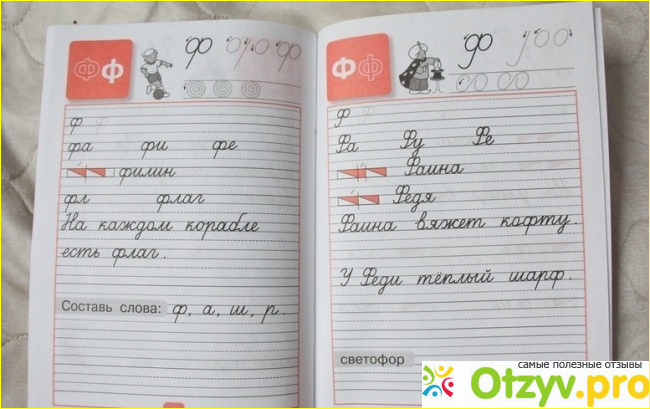 Ф ф
ф
ф
фа фи фе
филин
фл флаг
На каждом корабле
есть флаг.
Составь слова: ф, а, ш, р.
Ф Ф
Ф
Ф
Фа Фу Фе
Фаина
Федя
Фаина вяжет кофту.
У Феди тёплый шарф.
светофор
самые полезные отзывы
Otzyv.pro